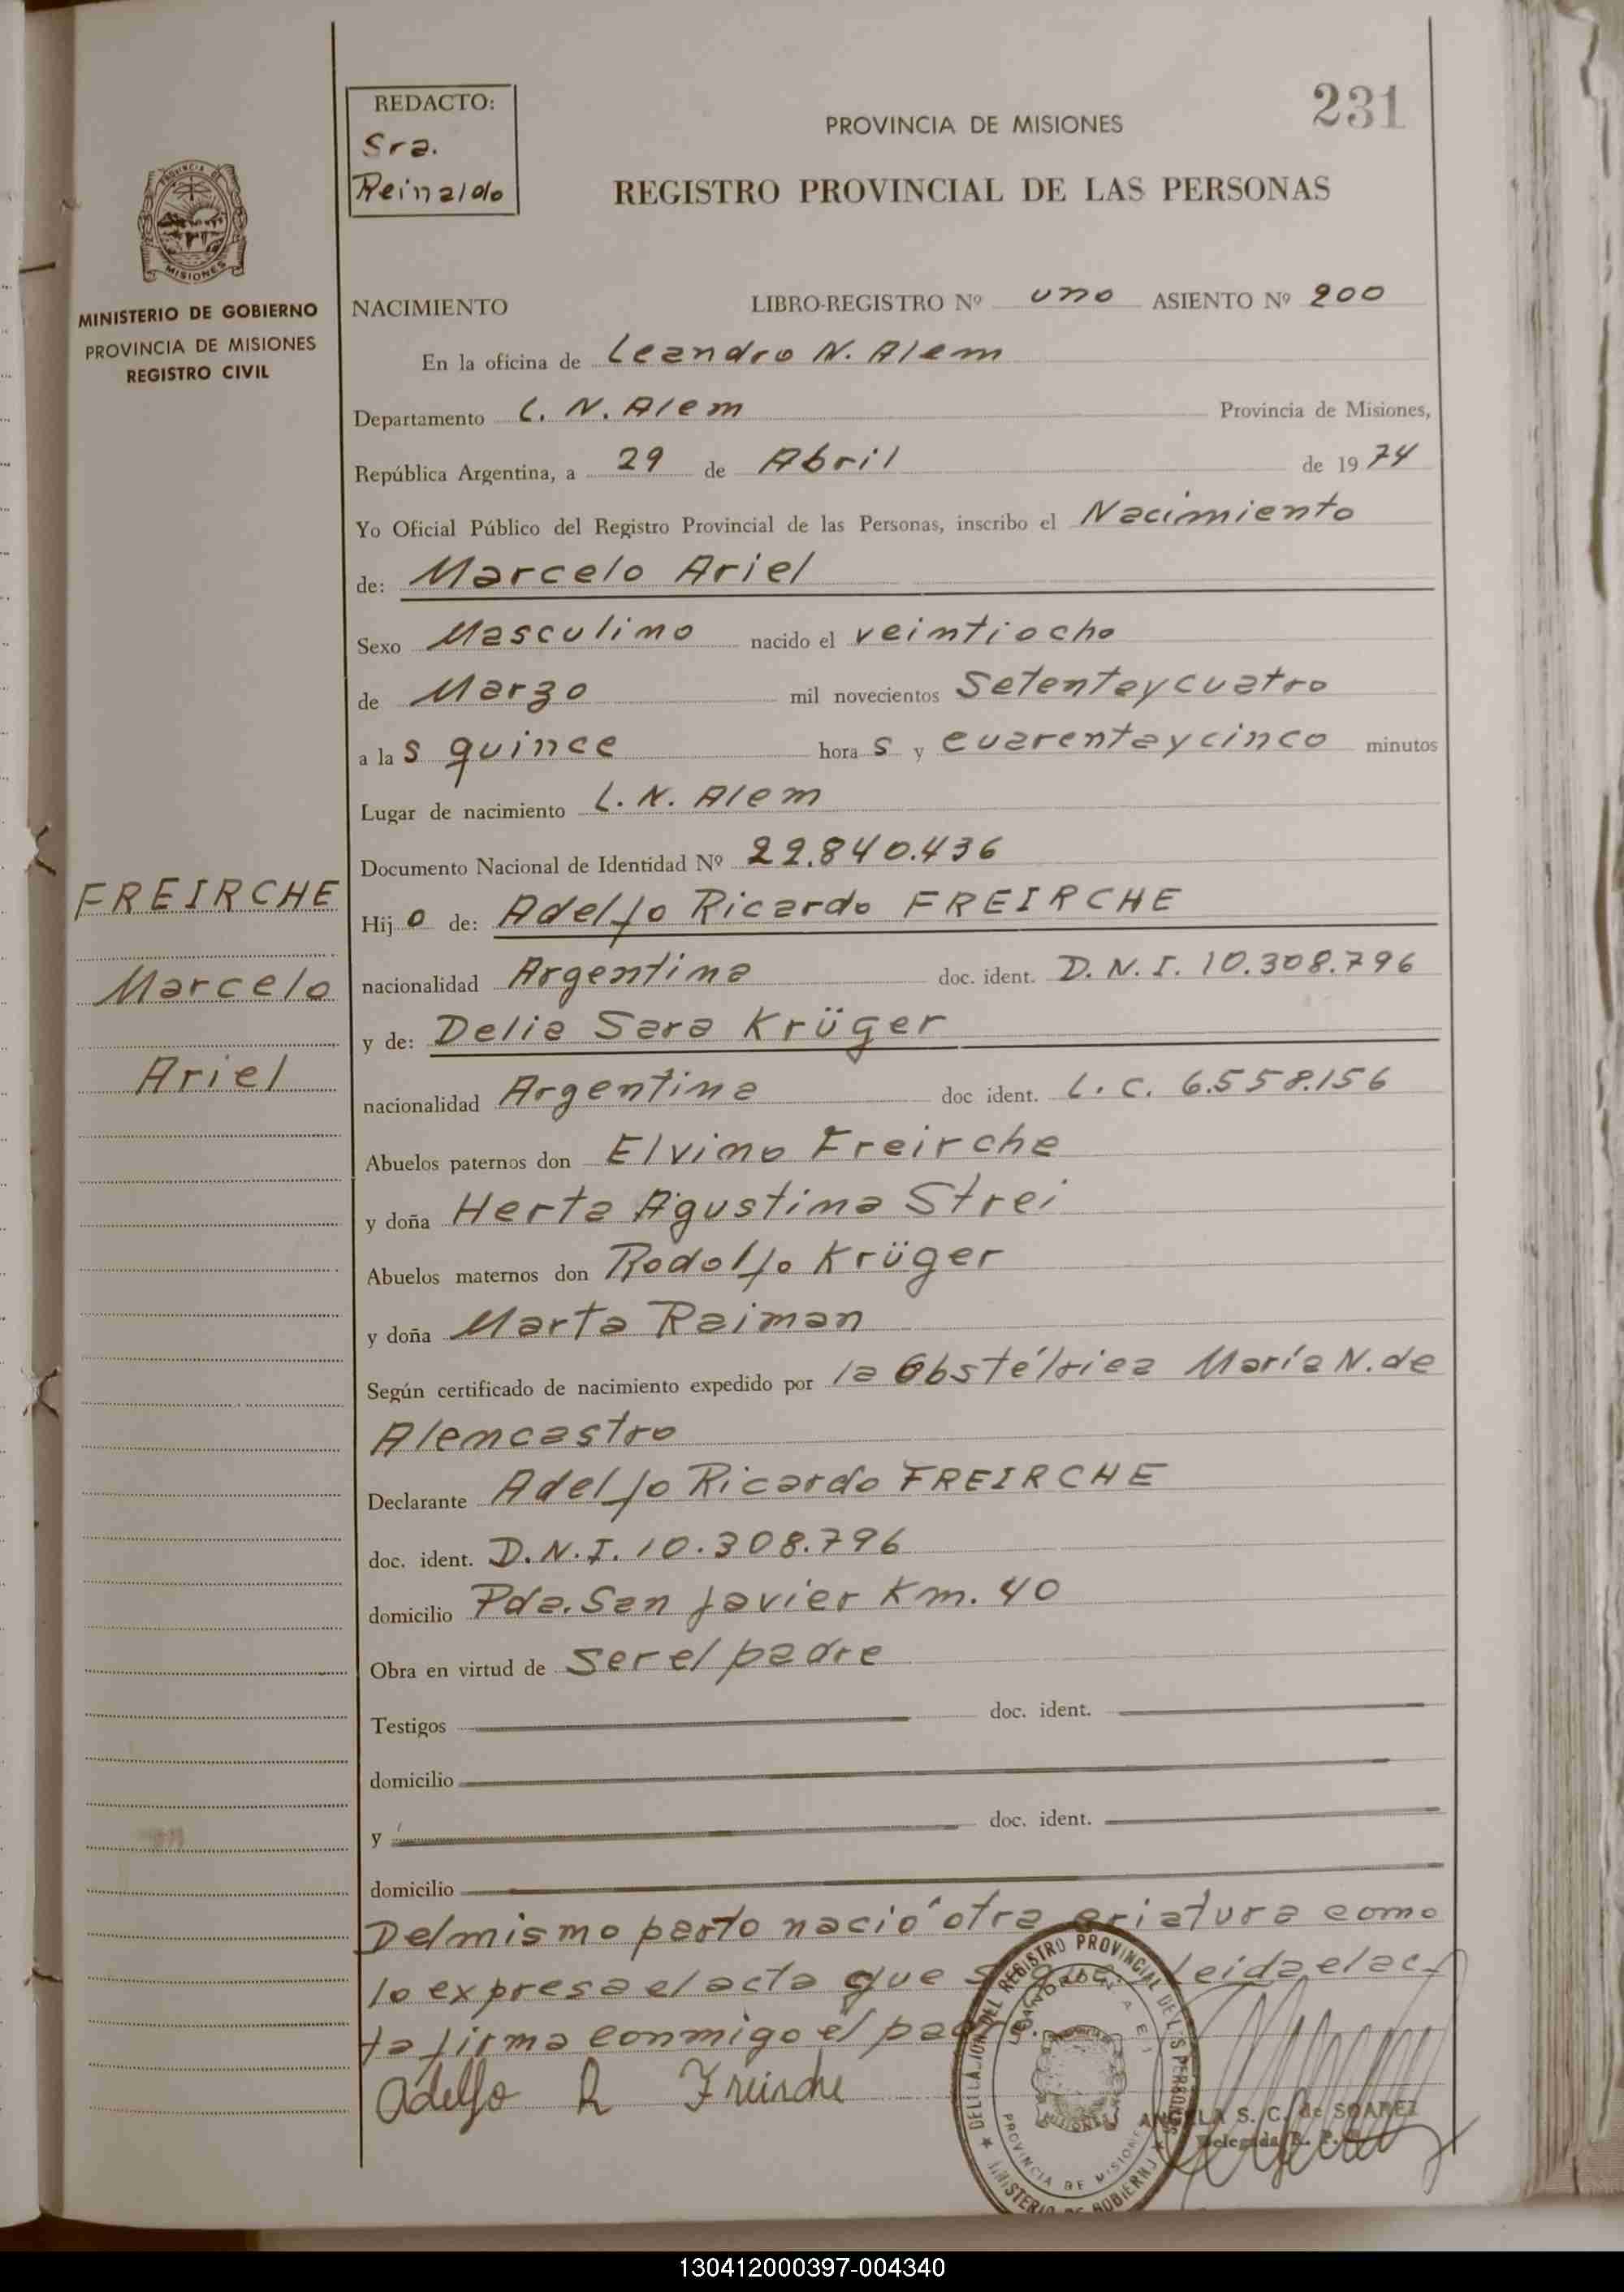 231
REDACTO:
Sra.
Reinaldo
PROVINCIA DE MISIONES
REGISTRO PROVINCIAL DE LAS PERSONAS
PROVINCIA DE
MISIONES
MINISTERIO DE GOBIERNO
PROVINCIA DE MISIONES
REGISTRO CIVIL
NACIMIENTO LIBRO-REGISTRO Nº uno ASIENTO Nº 200
En la oficina de Leandro N. Alem
Departamento L. N. Alem Provincia de Misiones,
República Argentina, a 29 de Abril de 1974
Yo Oficial Público del Registro Provincial de las Personas, inscribo el Nacimiento
de: Marcelo Ariel
Sexo Masculino nacido el veintiocho
de Marzo mil novecientos Setentaycuatro
a las quince horas y cuarentaycinco minutos
Lugar de nacimiento L. N. Alem
Documento Nacional de Identidad Nº 22.840.436
FREIRCHE
Marcelo
Ariel
Hijo de: Adelfo Ricardo FREIRCHE
nacionalidad Argentina doc. ident. D. N. I. 10.308.796
y de: Delia Sara Krüger
nacionalidad Argentina doc ident. L. C. 6.558.156
Abuelos paternos don Elvino Freirche
y doña Herta Agustina Strei
Abuelos maternos don Rodolfo Krüger
y doña Marta Raiman
Según certificado de nacimiento expedido por la Obstétrica María N. de
Alencastro
Declarante Adelfo Ricardo FREIRCHE
doc. ident. D. N. I. 10.308.796
domicilio Pda. San Javier Km. 40
Obra en virtud de Ser el padre
Testigos doc. ident.
domicilio
y doc. ident.
domicilio
Del mismo parto nació otra criatura como
lo expresa el acta que sigue. Leida el ac-
ta firma conmigo el padre.
Adelfo R Freirche
DELEGACION DEL REGISTRO PROVINCIAL DE LAS PERSONAS
MINISTERIO DE GOBIERNO
PROVINCIA DE MISIONES
MISIONES
ANGELA S. C. de SOAREZ
Delegada R. P.
130412000397-004340